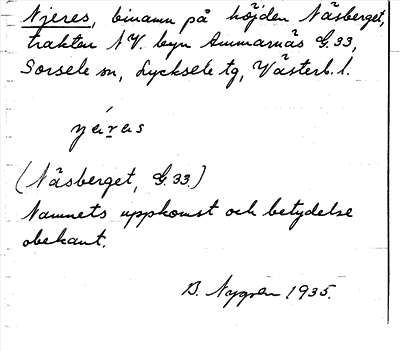 Njeres, binamn på höjden Näsberget,
trakten NV. byn Ammarnäs G.33,
Sorsele sn, Lycksele tg, Västerb. l.
ŋáras
(Näsberget, G.33.)
Namnets uppkomst och betydelse
obekant.
B. Nygren 1935.